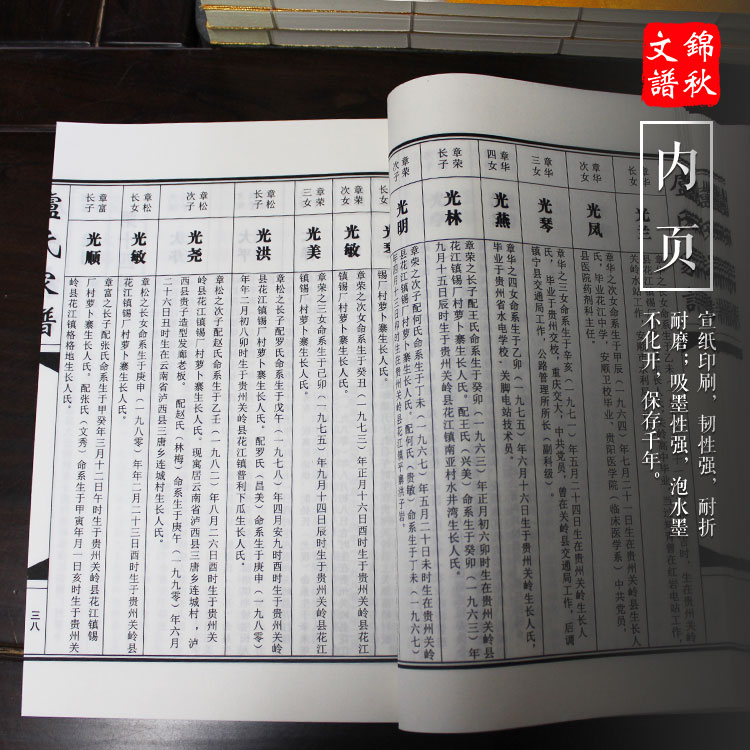 錦秋
文譜
内页
宣纸印刷，韧性强，耐折
耐磨；吸墨性强，泡水墨
不化开，保存千年。
章华
光兰
章华
光凤
章华之次女命系生于甲辰（一九六四）年七月二十
氏，毕业花江中学、安顺卫校毕业，贵阳医学院（临床医学系）中共党员，
县医院药剂科主任。
章华
三女
光琴
章华之三女命系生于辛亥（一九七一）年五月二十一日生在贵州关岭生长人
氏，毕业于贵州交校、重庆交大，中共党员，曾在关岭县交通局工作，后调
镇宁县交通局工作，公路管理所所长（副科级）。
章华
四女
光燕
章华之四女命系生于乙卯（一九七五）年六月十六日生于贵州关岭生长人氏，
毕业于贵州省水电学校。关脚电站技术员。
章荣
长子
光林
章荣之长子配王氏命系生于癸卯（一九六三）年正月初六卯时生在贵州关岭
花江镇锡厂村萝卜寨生长人氏。配王氏（兴美）命系生于癸卯（一九六三）年
九月十五日辰时生于贵州关岭县花江镇南亚村水井湾生长人氏。
章荣
次子
光明
章荣之次子配何氏命系生于丁未（一九六七）年五月二十日未时生在贵州关岭
县花江镇锡厂村萝卜寨生长人氏。配何氏（贵敏）命系生于丁未（一九六七）
长女
锡厂村萝卜寨生长人氏。
章荣
次女
光敏
章荣之次女命系生于癸丑（一九七三）年正月十六日酉时生于贵州关岭县花江
镇锡厂村萝卜寨生长人氏。
章荣
三女
光美
章荣之三女命系生于己卯（一九七五）年九月十四日辰时生于贵州关岭县花江
镇锡厂村萝卜寨生长人氏。
章松
长子
光洪
章松之长子配罗氏命系生于戊午（一九七八）年四月安九时酉时生于贵州关岭
县花江镇锡厂村萝卜寨生长人氏。配罗氏（昌美）命系生于庚申（一九八零）
年年二月初八卯时生于贵州关岭县花江镇普利下瓜生长人氏。
章松
次子
光尧
章松之次子配赵氏命系生于乙壬（一九八二）年八月二六日酉时生于贵州关
岭县花江镇锡厂村萝卜寨生长人氏。现寓居云南省泸西县三唐乡连城村，泸
西县贵子造型发廊老板。配赵氏（林梅）命系生于庚午（一九九零）年六月
二十六日丑时生在云南省泸西县三唐乡连城村生长人氏。
章松
长女
光敏
章松之长女命系生于庚申（一九八零）年二月二十三日酉时生于贵州关岭县
花江镇锡厂村萝卜寨生长人氏。
章富
长子
光顺
章富之长子配张氏命系生于甲癸年三月十二日午时生于贵州关岭县花江镇锡
厂村萝卜寨生长人氏。配张氏（文秀）命系生于甲寅年月一日亥时生于贵州关
岭县花江镇格格地生长人氏。
盧氏家譜
三八